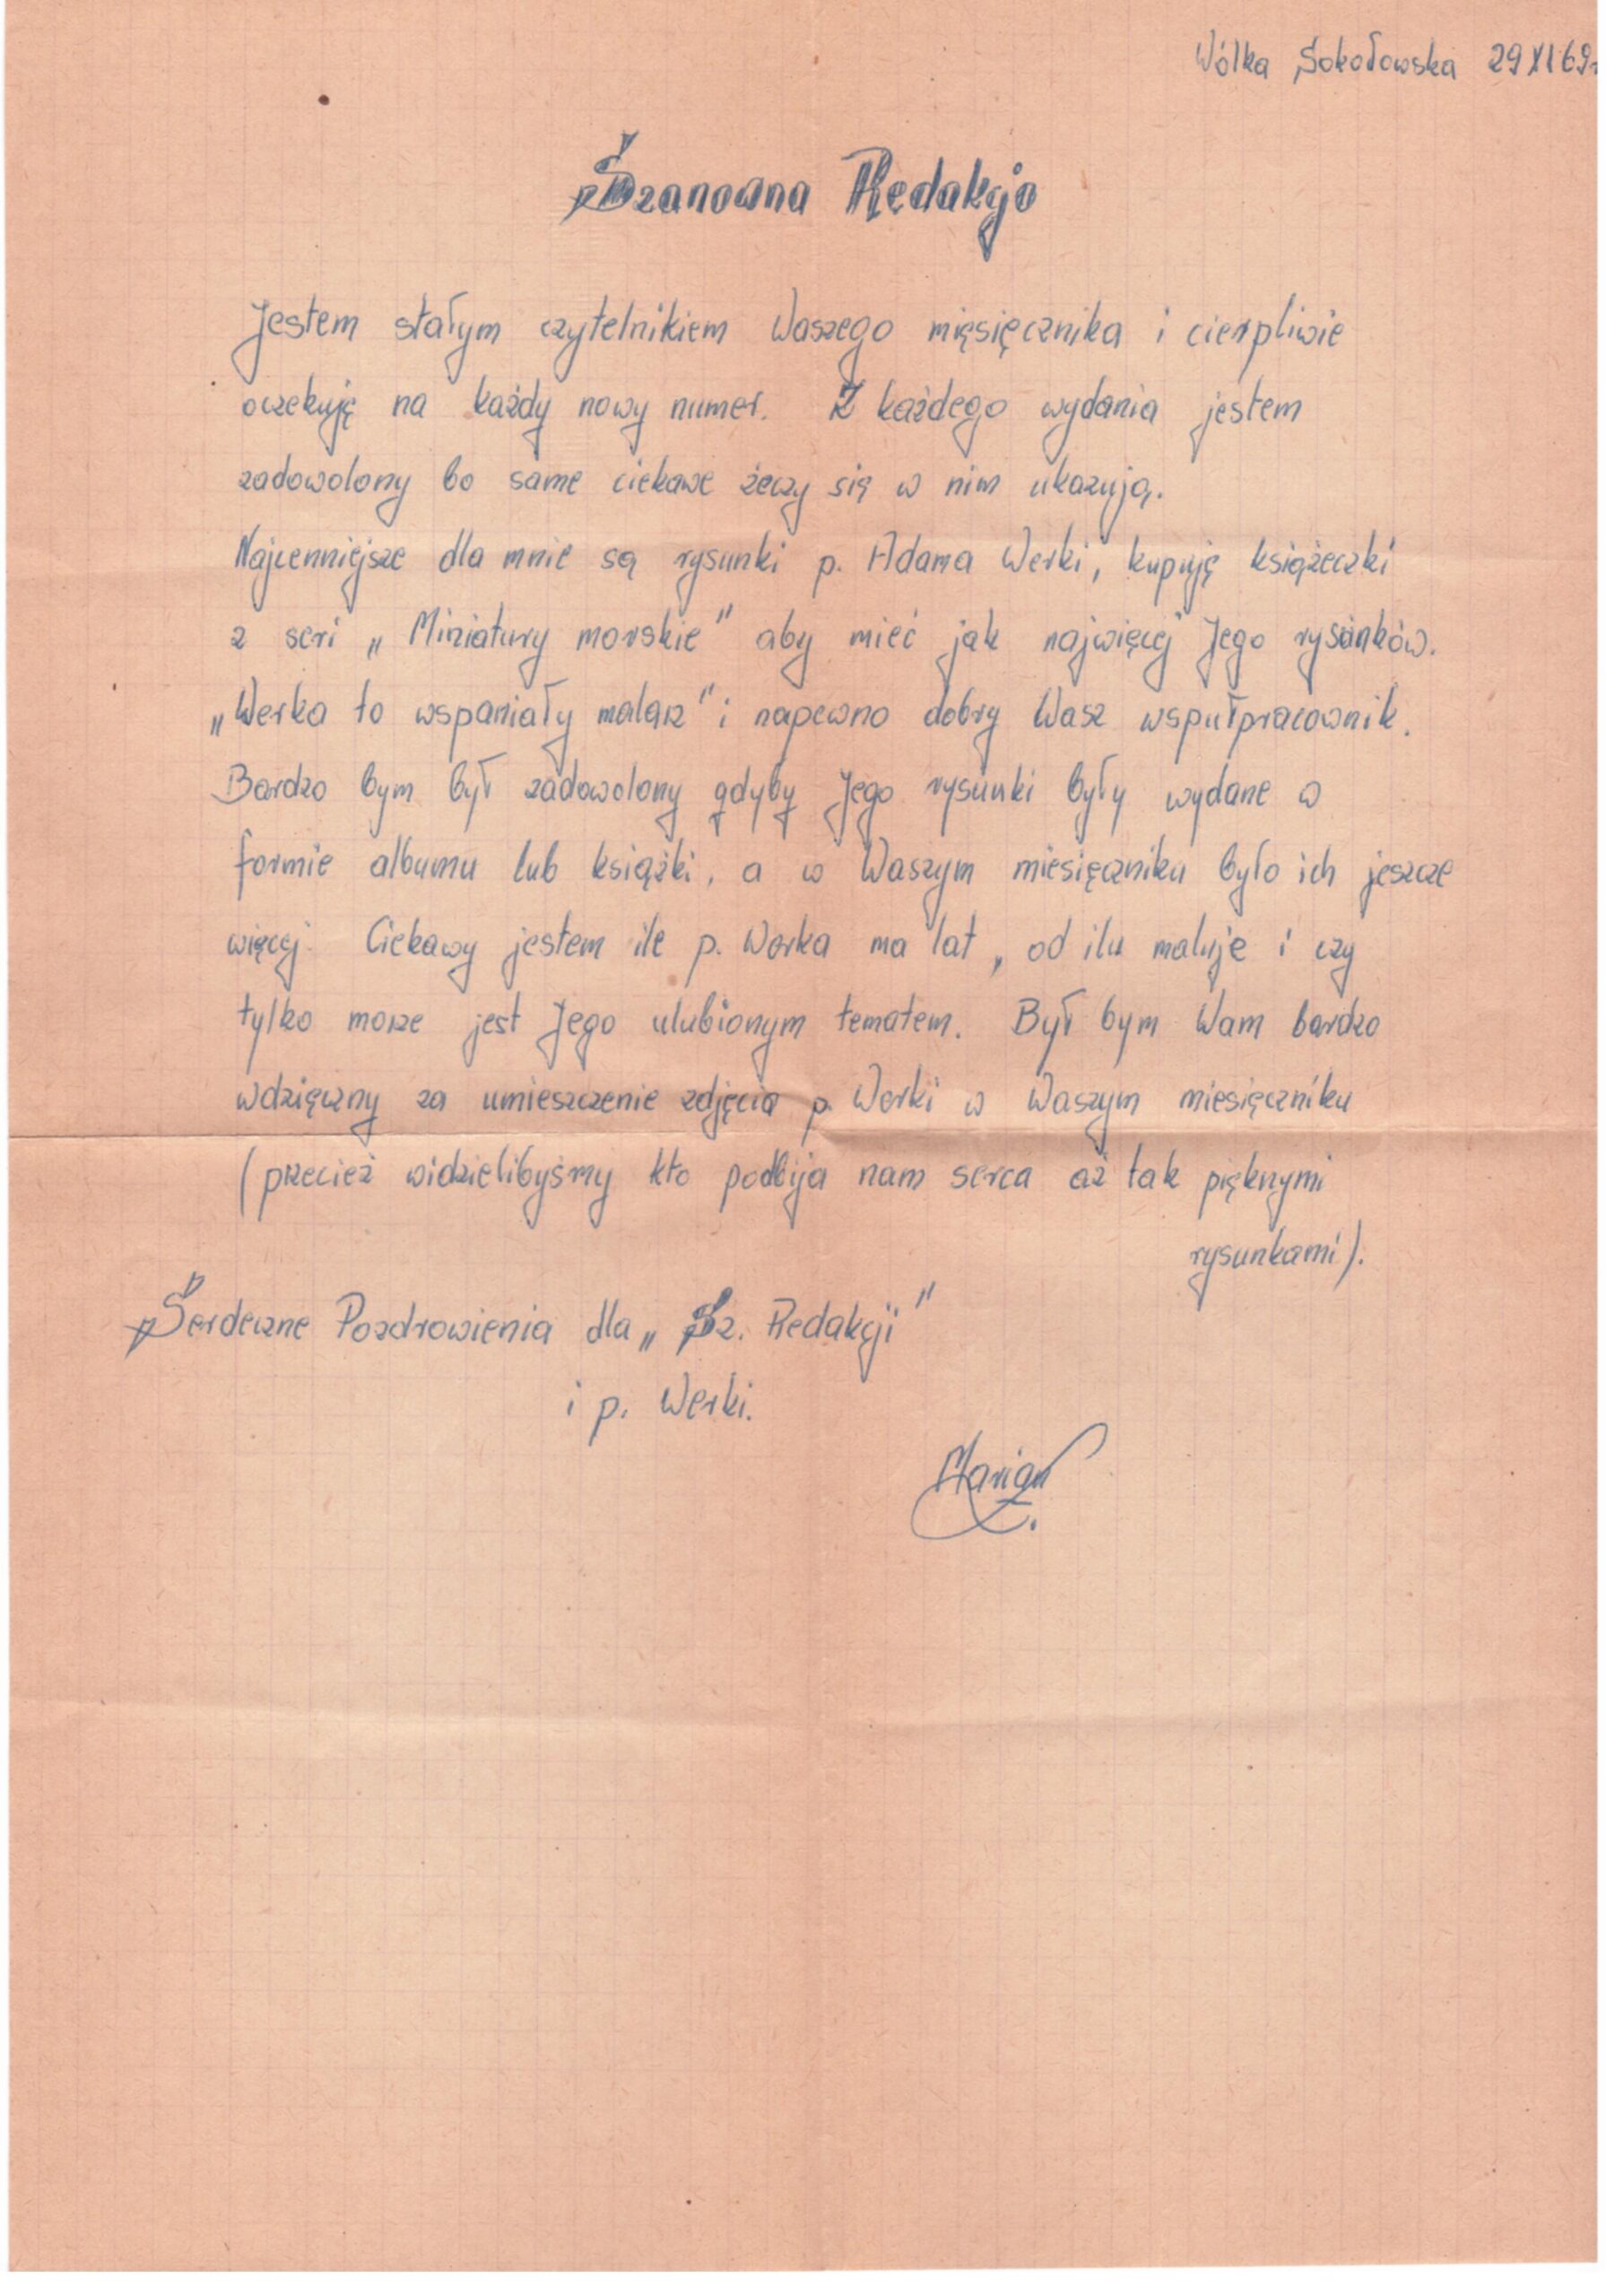 Wólka Sokołowska 29 XI 69r
Szanowna Redakcjo
Jestem stałym czytelnikiem Waszego mięsięcznika i cierpliwie
oczekuję na każdy nowy numer. Z każdego wydania jestem
zadowolony bo same ciekawe żeczy się w nim ukazują.
Najcenniejsze dla mnie są rysunki p. Adama Werki, kupuję książeczki
z seri „Miniatury morskie" aby mieć jak najwięcej Jego rysunków.
„Werka to wspaniały malarz" i napewno dobry Wasz wspułpracownik.
Bardzo bym był zadowolony gdyby Jego rysunki były wydane w
formie albumu lub książki, a w Waszym miesięczniku było ich jeszcze
więcej. Ciekawy jestem ile p. Werka ma lat, od ilu maluje i czy
tylko morze jest Jego ulubionym tematem. Był bym Wam bardzo
wdzięczny za umieszczenie zdjęcia p. Werki w Waszym miesięczniku
(przecież widzielibyśmy kto podbija nam serca aż tak pięknymi
rysunkami).
Serdeczne Pozdrowienia dla „Sz. Redakcji"
i p. Werki.
Marian
Z.